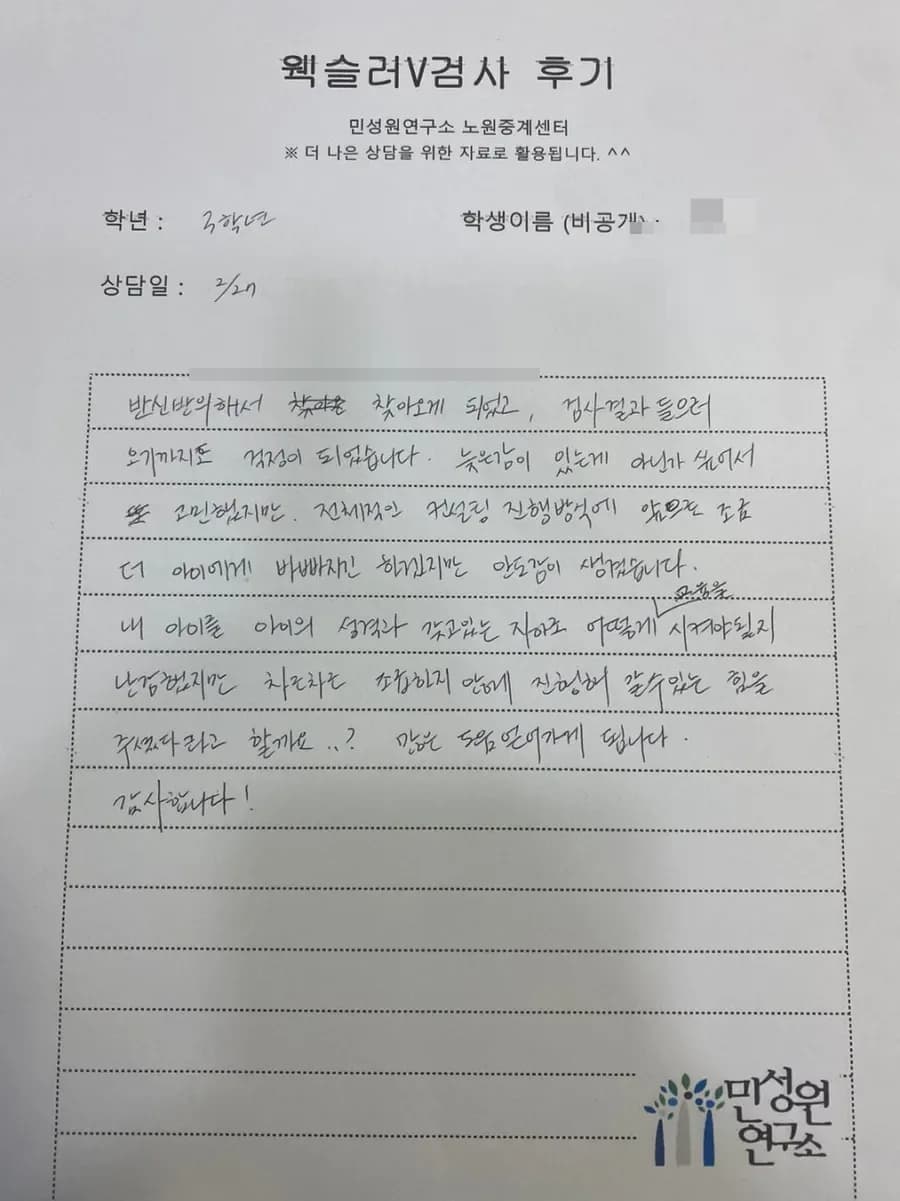 웩슬러V검사 후기
민성원연구소 노원중계센터
※ 더 나은 상담을 위한 자료로 활용됩니다. ^^
학년 : 학년 학생이름 (비공개) :
상담일 :
반신반의해서 찾아오게 되었고, 검사결과 들으러
오기까지도 걱정이 되었습니다. 늦은감이 있는게 아닌가 싶어서
고민했지만. 전체적인 컨설팅 진행방식에 앞으로 조금
더 아이에게 바빠지긴 하겠지만 안도감이 생겼습니다.
내 아이를 아이의 성격과 갖고있는 어떻게 교육을 시켜야될지
난감했지만 차근차근 조급하지 안에 진행해 갈수있는 힘을
주셨다라고 할까요..? 많은 도움얻어가게 됩니다.
감사합니다!
민성원
연구소